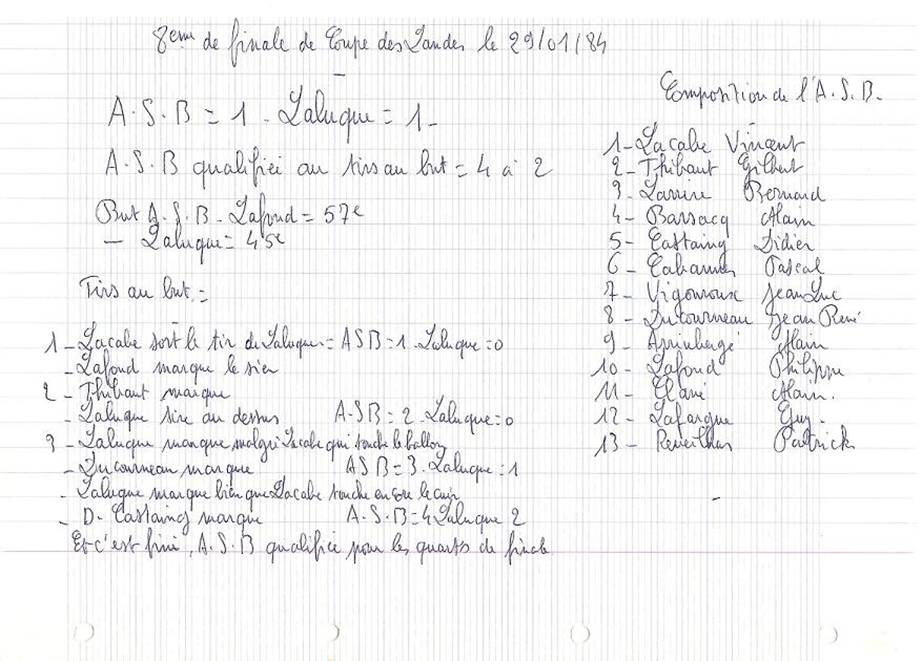 8ème de finale de Coupe des Landes le 29/01/84
A.S.B = 1 - Laluque = 1 -
A.S.B qualifiée au tirs au but = 4 à 2
But A.S.B - Lafond = 57e
- Laluque = 45e
Tirs au but =
1 - Lacabe sort le tir de Laluque = ASB = 1 - Laluque = 0
- Lafond marque le sien
2 - Thibaut marque
- Laluque tire au dessus A.SB = 2 - Laluque = 0
3 - Laluque marque malgré Lacabe qui touche le ballon
- Ducourneau marque ASB = 3 - Laluque = 1
- Laluque marque bien que Lacabe touche encore le cuir
- D. Castaing marque A.S.B = 4 Laluque 2
Et c'est fini, A.S.B qualifiée pour les quarts de finale
Composition de l'A.S.B.
1 - Lacabe Vincent
2 - Thibaut Gilbert
3 - Bernard
4 - Barsacq Alain
5 - Castaing Didier
6 - Cabannes Pascal
7 - Vigouroux Jean Luc
8 - Ducourneau Jean René
9 - Alain
10 - Lafond Philippe
11 - Alain.
12 - Lafargue Guy.
13 - Patrick